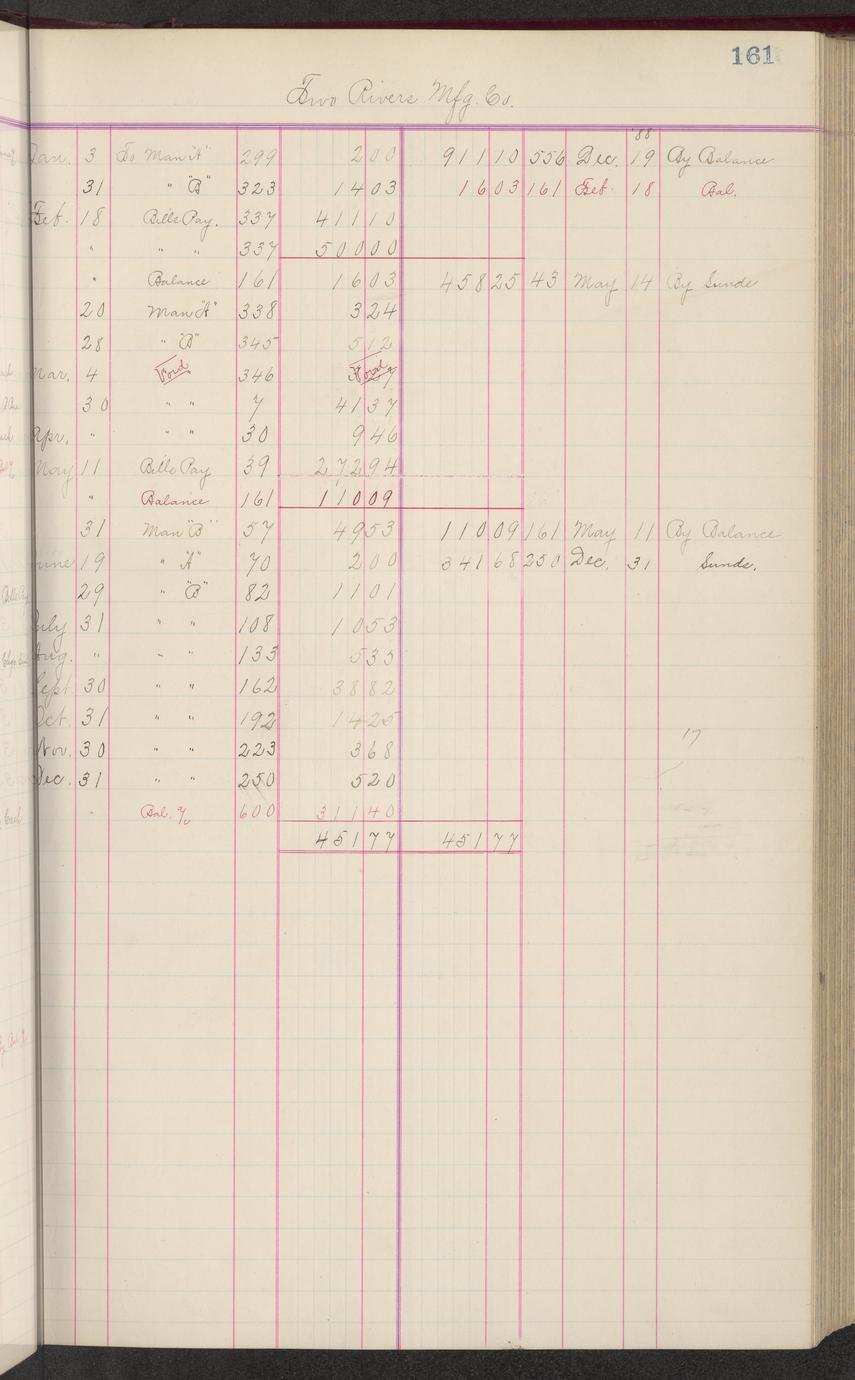 161
Two Rivers Mfg. Co.
'88
Jan. 3 To Man "A" 299 2 00 911 10 556 Dec. 19 By Balance
31 " "B" 323 14 03 16 03 161 Feb. 18 Bal.
Feb. 18 Bills Pay. 337 411 10
" " " 337 500 00
" Balance 161 16 03 458 25 43 May 14 By Sunds
20 Man "A" 338 3 24
28 " "B" 345 5 12
Mar. 4 Void 346 Void
30 " " 7 41 37
Apr. " " " 30 9 46
May 11 Bills Pay 39 272 94
" Balance 161 110 09
31 Man "B" 57 49 53 110 09 161 May 11 By Balance
June 19 " "A" 70 2 00 341 68 250 Dec. 31 Sunds.
29 " "B" 82 11 01
July 31 " " 108 10 53
Aug. " " " 133 5 35
Sept. 30 " " 162 38 82
Oct. 31 " " 192 14 25
17
Nov. 30 " " 223 3 68
Dec. 31 " " 250 5 20
" Bal. 600 311 40
451 77 451 77